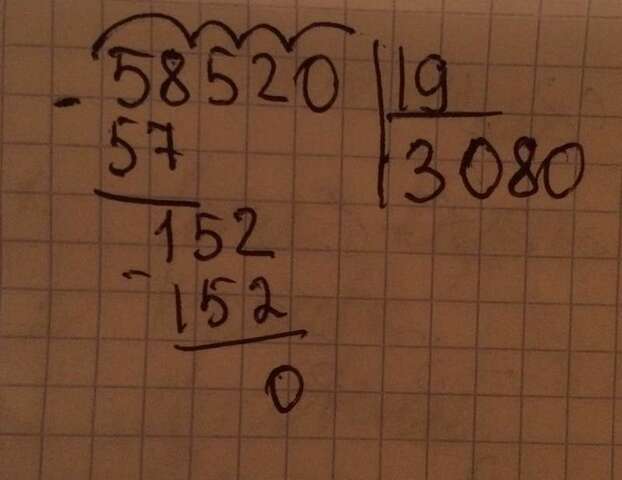 - 58520 | 19
57 3080
- 152
152
0